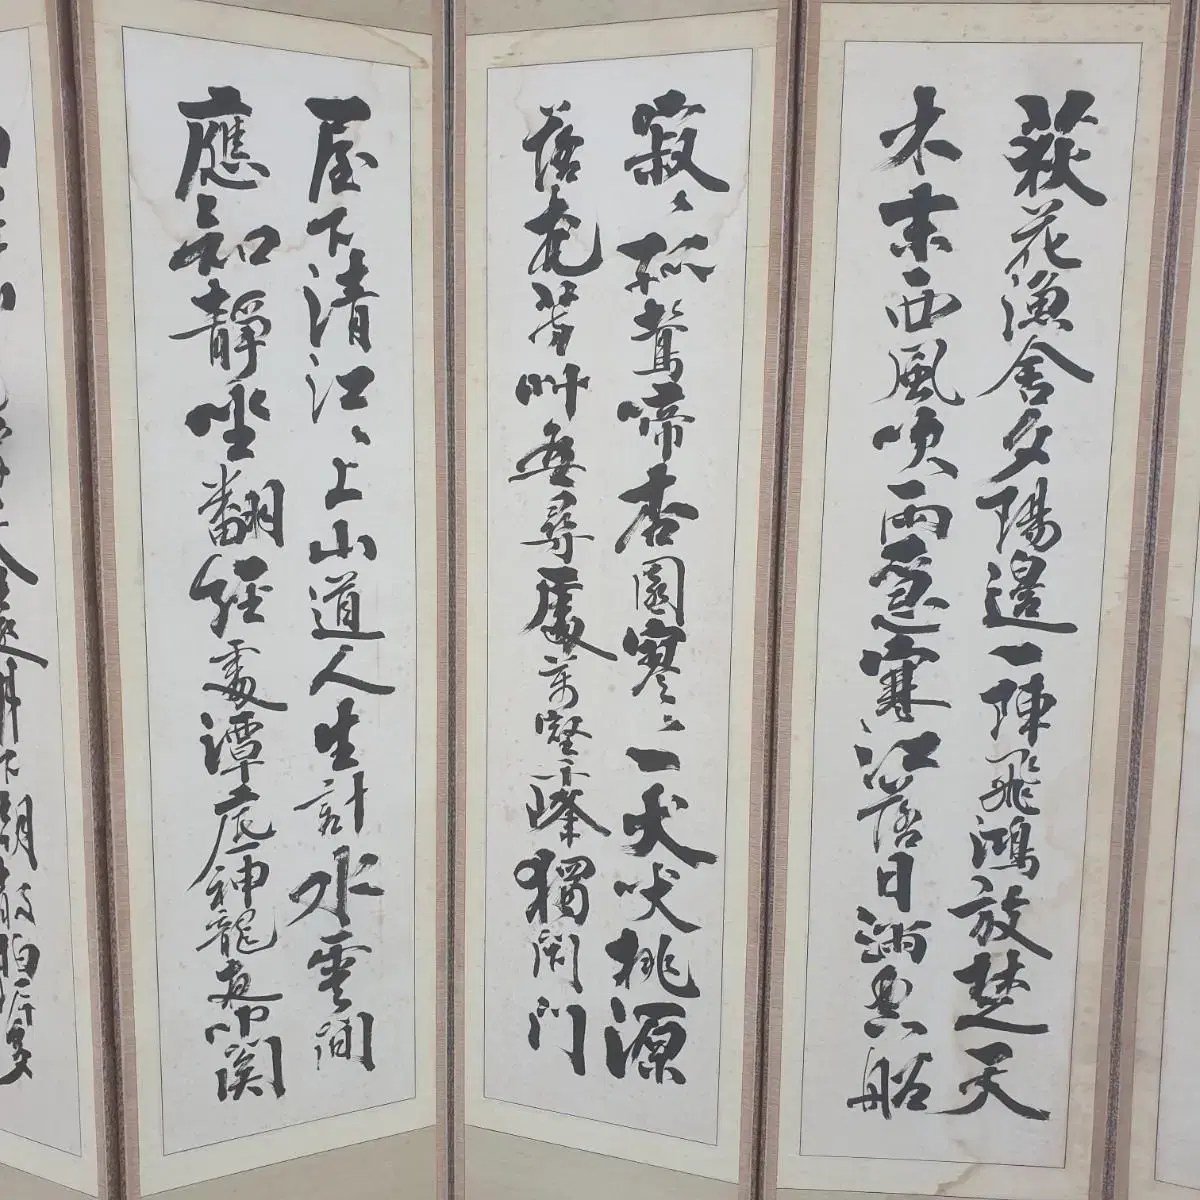 荻花漁舍夕陽邊一陣飛鴻放楚天
木末西風吹雨急寒江落日滿魚船
寂〻孤鶯啼杏園寥〻一犬吠桃源
落花芳艸無尋處萬壑千峰獨閉門
屋下清江〻上山道人生計水雲間
應知靜坐翻經處潭底神龍夜叩關